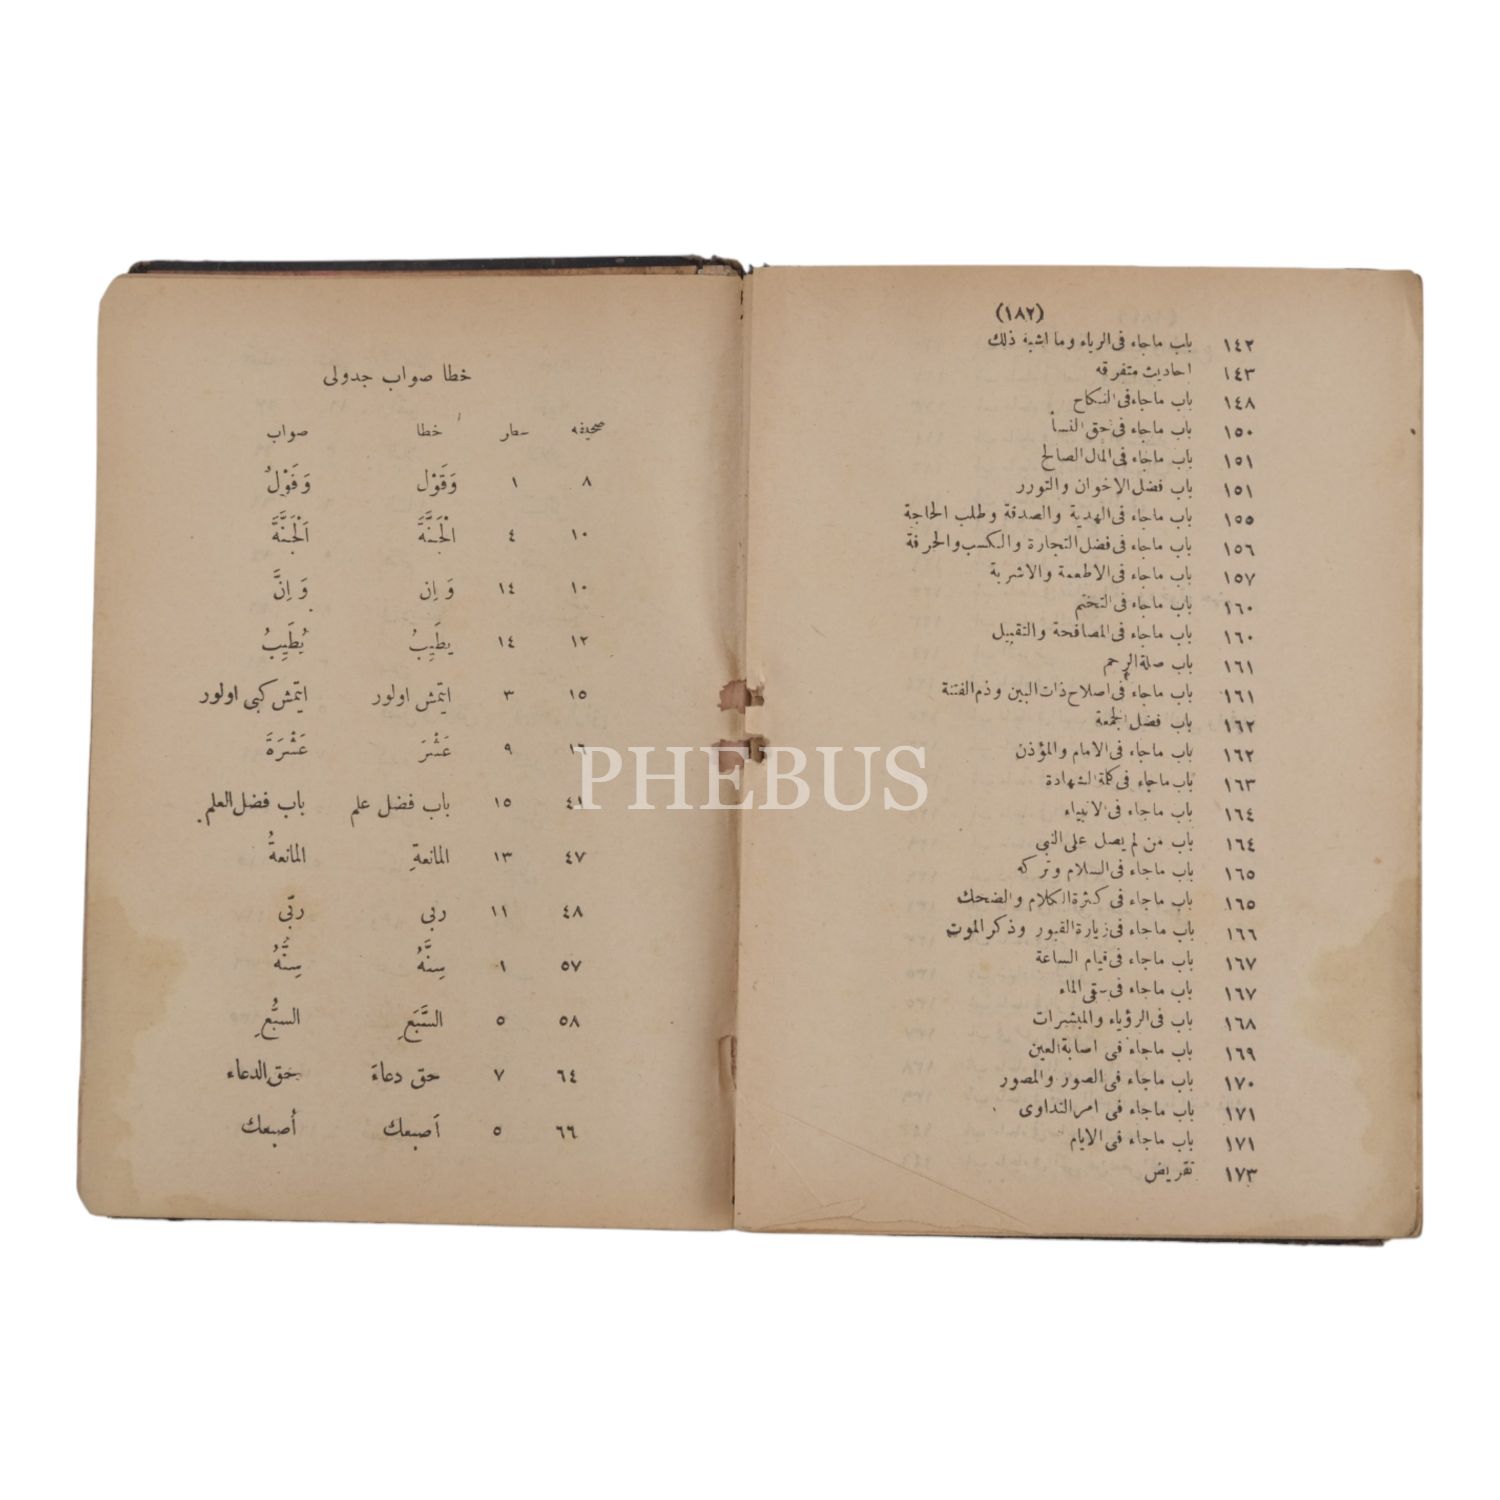 (١٨٢)
١٤٢ باب ماجاء فى الرياء وما اشبه ذلك
١٤٣ احاديث متفرقه
١٤٨ باب ماجاء فى النكاح
١٥٠ باب ماجاء فى حق النسأ
١٥١ باب ماجاء فى المال الصالح
١٥١ باب فضل الاخوان والتورر
١٥٥ باب ماجاء فى الهدية والصدقة وطلب الحاجة
١٥٦ باب ماجاء فى فضل التجارة والكسب والحرفة
١٥٧ باب ماجاء فى الاطعمة والاشربة
١٦٠ باب ماجاء فى التختم
١٦٠ باب ماجاء فى المصافحة والتقبيل
١٦١ باب صلة الرحم
١٦١ باب ماجاء فى اصلاح ذات البين وذم الفتنة
١٦٢ باب فضل الجمعة
١٦٢ باب ماجاء فى الامام والمؤذن
١٦٣ باب ماجاء فى كلمة الشهادة
١٦٤ باب ماجاء فى الانبياء
١٦٤ باب من لم يصل على النبى
١٦٥ باب ماجاء فى السلام وتركه
١٦٥ باب ماجاء فى كثرة الكلام والضحك
١٦٦ باب ماجاء فى زيارة القبور وذكر الموت
١٦٧ باب ماجاء فى قيام الساعة
١٦٧ باب ماجاء فى سقى الماء
١٦٨ باب فى الرؤياء والمبشرات
١٦٩ باب ماجاء فى اصابة العين
١٧٠ باب ماجاء فى الصور والمصور
١٧١ باب ماجاء فى امر التداوى
١٧١ باب ماجاء فى الايام
١٧٣ تقريض
خطا صواب جدولى
صحيفه سطر خطا صواب
٨ ١ وَقَوْل وَقَوْلُ
١٠ ٤ الْجَنَّةَ اَلْجَنَّةَ
١٠ ١٤ وَاِن وَاِنَّ
١٢ ١٤ يطَيِبُ يُطَيِبُ
١٥ ٣ ايتمش اولور ايتمش كبى اولور
١٦ ٩ عَشْرَ عَشْرَةَ
٤١ ١٥ باب فضل علم باب فضل العلم
٤٧ ١٣ المانعةِ المانعةُ
٤٨ ١١ ربى ربّى
٥٧ ١ سِنَّهُ سِنُّهُ
٥٨ ٥ السَّبَعِ السبُعِ
٦٤ ٧ حق دعاءَ حق الدعاء
٦٦ ٥ اَصبعك اُصبعك
PHEBUS